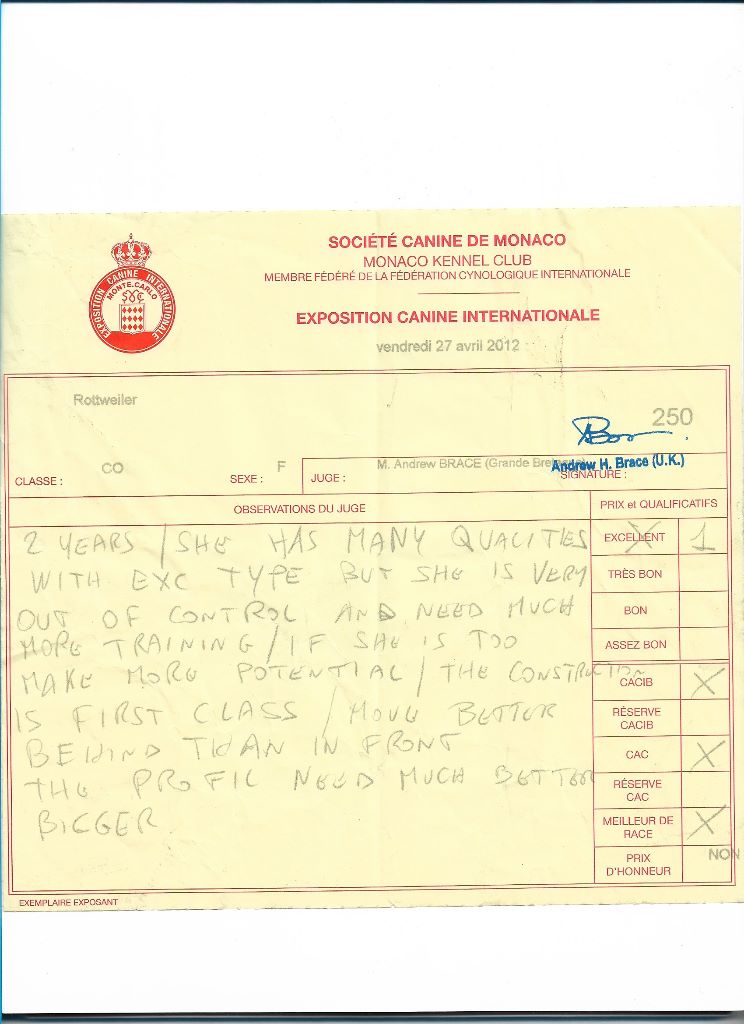 SOCIÉTÉ CANINE DE MONACO
MONACO KENNEL CLUB
MEMBRE FÉDÉRÉ DE LA FÉDÉRATION CYNOLOGIQUE INTERNATIONALE
EXPOSITION CANINE INTERNATIONALE
MONTE-CARLO
EXPOSITION CANINE INTERNATIONALE
vendredi 27 avril 2012
Rottweiler
250
CLASSE : CO
SEXE : F
JUGE : M. Andrew BRACE (Grande Bretagne)
Andrew H. Brace (U.K.)
SIGNATURE :
OBSERVATIONS DU JUGE
PRIX et QUALIFICATIFS
2 YEARS / SHE HAS MANY QUALITIES
WITH EXC TYPE BUT SHE IS VERY
OUT OF CONTROL AND NEED MUCH
MORE TRAINING / IF SHE IS TOO
MAKE MORE POTENTIAL / THE CONSTRUCTION
IS FIRST CLASS / MOVE BETTER
BEHIND THAN IN FRONT
THE PROFIL NEED MUCH BETTER
BIGGER
EXCELLENT 1
TRÈS BON
BON
ASSEZ BON
CACIB X
RÉSERVE CACIB
CAC X
RÉSERVE CAC
MEILLEUR DE RACE X
PRIX D'HONNEUR NON
EXEMPLAIRE EXPOSANT